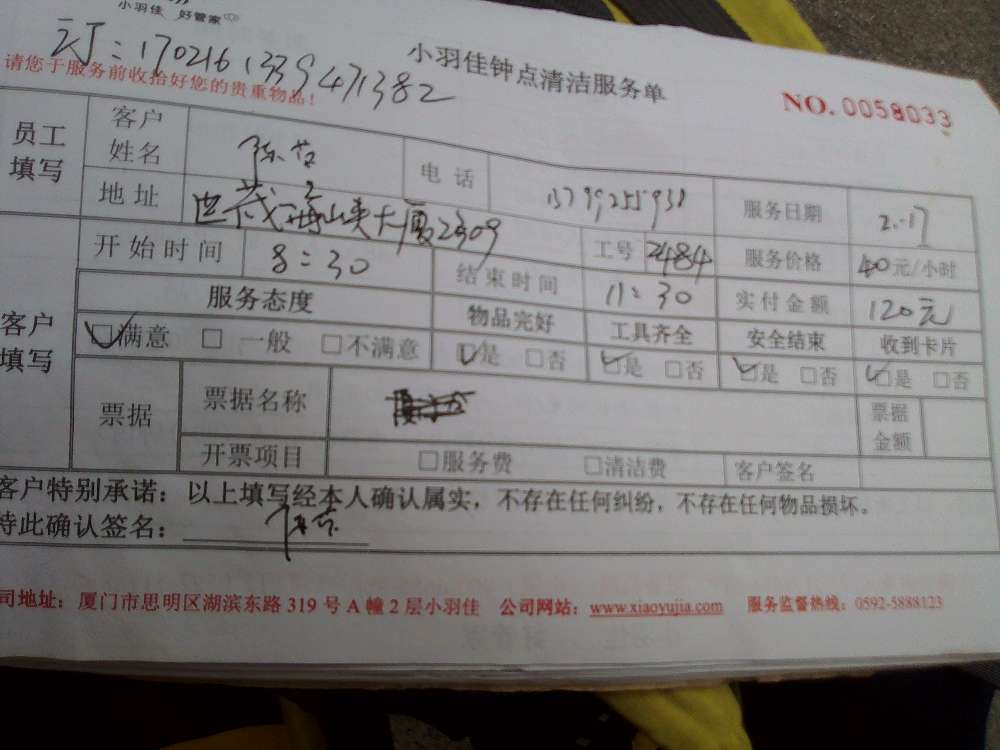 小羽佳 好管家
订:1702161339471382
小羽佳钟点清洁服务单
请您于服务前收拾好您的贵重物品!
NO. 0058033
员工填写 客户姓名 电话 13799255938 服务日期 2.17
地址 世茂海峡大厦2309 工号 2484 服务价格 40元/小时
开始时间 8:30 结束时间 11:30 实付金额 120元
客户填写 服务态度 物品完好 工具齐全 安全结束 收到卡片
☑满意 □一般 □不满意 ☑是 □否 ☑是 □否 ☑是 □否 ☑是 □否
票据 票据名称 票据金额
开票项目 □服务费 □清洁费 客户签名
客户特别承诺:以上填写经本人确认属实,不存在任何纠纷,不存在任何物品损坏。
特此确认签名:
司地址:厦门市思明区湖滨东路 319 号 A 幢 2 层小羽佳 公司网站:www.xiaoyujia.com 服务监督热线:0592-5888123